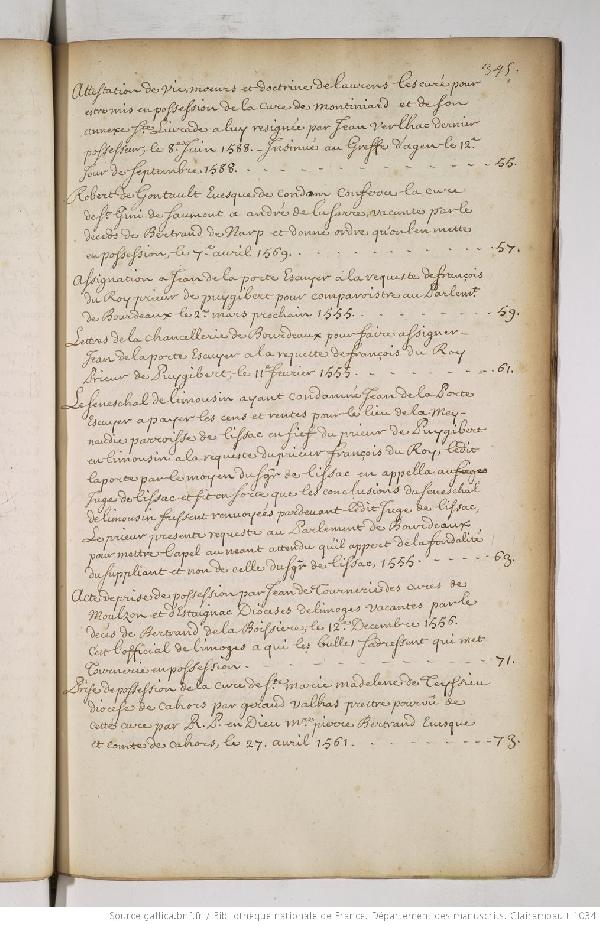 345.
Attestation de vie moeurs et doctrine de Laurens Lescuré pour
estre mis en possession de la cure de Montiniard et de son
annexe Ste. Livrade a luy resignée par Jean Verlhac dernier
possesseur, le 8e. Juin 1588. Insinué au Greffe d'agen le 12e.
Jour de Septembre 1588. 55.
Robert de Gontault Evesque de Condom Confere la cure
de St. Gini de Saumont a andré de Lasserre, vacante par le
deceds de Bertrand de Narp et donne ordre qu'on l'en mette
en possession, le 7e. avril 1569. 57.
Assignation a Jean de la porte Escuyer à la requeste de françois
du Roy prieur de puygibert pour comparoistre au Parlemt.
de Bourdeaux le 2e. mars prochain 1555. 59.
Lettres de la Chancellerie de Bourdeaux pour faire assigner
Jean de la porte Escuyer a la requette de françois du Roy
Prieur de Puygibert, le 11e. fevrier 1555. 61.
Le Seneschal de Limousin ayant Condamné Jean de la Porte
Escuyer a payer les cens et rentes pour le lieu de la Mey-
naudie parroisse de Lissac en fief du prieur de Puygibert
en Limousin a la requeste du prieur françois du Roy, ledit
laporte par le moyen du Sgr. de Lissac en appella au
Juge de Lissac et fit en sorte que les conclusions du Seneschal
de Limousin fussent renvoyées pardevant ledit Juge de Lissac,
Le prieur presente requeste au Parlement de Bourdeaux
pour mettre l'apel au neant attendu qu'il appert de la fondalité
du suppliant et non de celle du Sgr. de Lissac, 1555. 63.
Acte de prise de possession par Jean de Tournerie des cures de
Moulzon et d'Estaignac Dioceses de Limoges vacantes par le
deces de Bertrand de la Boissiere, le 12e. Decembre 1556.
C'est l'official de Limoges a qui les bulles s'adressent qui met
Tournerie en possession. 71.
Prise de possession de la Cure de Ste. Marie Madelene de Teyssieu
diocese de Cahors par geraud Valhas prestre pourvû de
cette cure par R. P. en Dieu mre. pierre Bertrand Evesque
et comte de Cahors, le 27. avril 1561. 73.
Source gallica.bnf.fr / Bibliothèque nationale de France. Département des manuscrits. Clairambault 1034